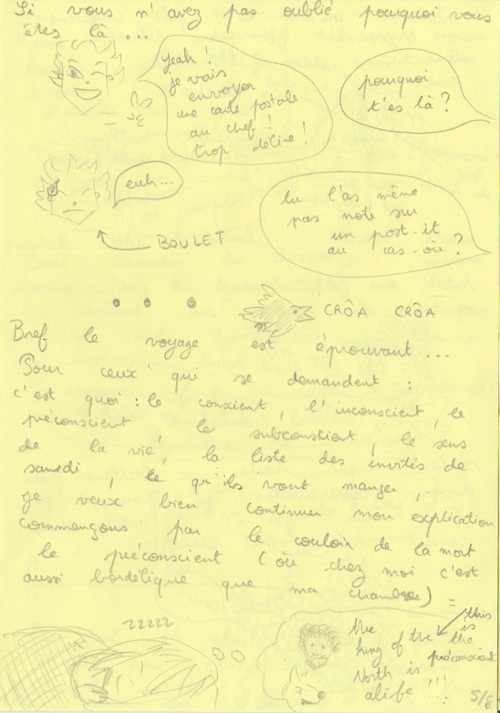 Si vous n'avez pas oublié pourquoi vous
êtes là ...
Yeah !
je vais
envoyer
une carte postale
au chef !
trop délire !
pourquoi
t'es là ?
euh...
BOULET
tu l'as même
pas noté sur
un post-it
au cas-où ?
CRÔA CRÔA
Bref le voyage est éprouvant ...
Pour ceux qui se demandent :
c'est quoi : le conscient, l'inconscient, le
préconscient le subconstient, le sens
de la vie, la liste des invités de
samedi, ce qu'ils vont manger,
je veux bien continuer mon explication
commençons par le couloir de la mort
le préconscient (où chez moi c'est
aussi bordélique que ma chambre) =
zzzzz
the
king of the
North is
alife !!!
this
is
the
préconscient
5/8